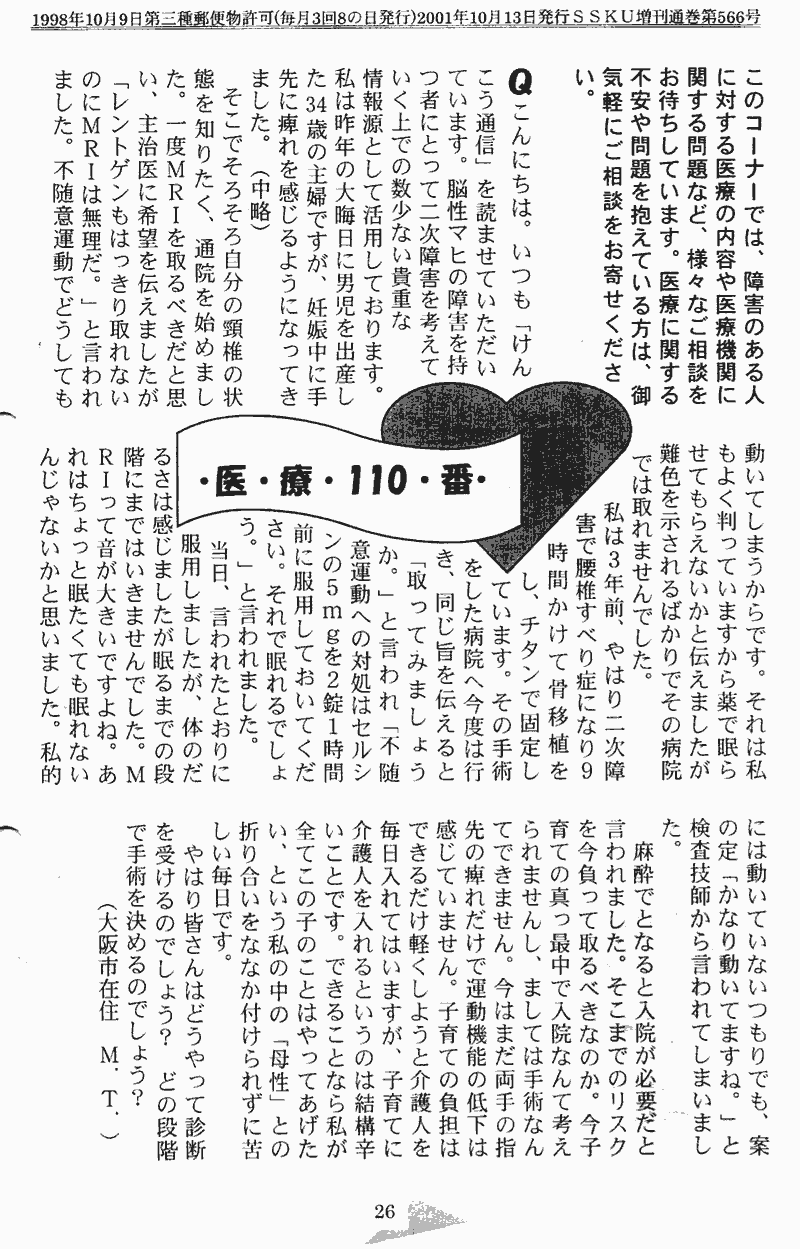 1998年10月9日第三種郵便物許可(毎月3回8の日発行)2001年10月13日発行ＳＳＫＵ増刊通巻第566号
このコーナーでは、障害のある人
に対する医療の内容や医療機関に
関する問題など、様々なご相談を
お待ちしています。医療に関する
不安や問題を抱えている方は、御
気軽にご相談をお寄せくださ
い。
Qこんにちは。いつも「けん
こう通信」を読ませていただい
ています。脳性マヒの障害を持
つ者にとって二次障害を考えて
いく上での数少ない貴重な
情報源として活用しております。
私は昨年の大晦日に男児を出産し
た34歳の主婦ですが、妊娠中に手
先に痺れを感じるようになってき
ました。（中略）
そこでそろそろ自分の頸椎の状
態を知りたく、通院を始めまし
た。一度ＭＲＩを取るべきだと思
い、主治医に希望を伝えましたが
「レントゲンもはっきり取れない
のにＭＲＩは無理だ。」と言われ
ました。不随意運動でどうしても
・医・療・110・番・
動いてしまうからです。それは私
もよく判っていますから薬で眠ら
せてもらえないかと伝えましたが
難色を示されるばかりでその病院
では取れませんでした。
私は３年前、やはり二次障
害で腰椎すべり症になり９
時間かけて骨移植を
し、チタンで固定し
ています。その手術
をした病院へ今度は行
き、同じ旨を伝えると
「取ってみましょう
か。」と言われ「不随
意運動への対処はセルシ
ンの５ｍｇを２錠１時間
前に服用しておいてくだ
さい。それで眠れるでしょ
う。」と言われました。
当日、言われたとおりに
服用しましたが、体のだ
るさは感じましたが眠るまでの段
階にまではいきませんでした。Ｍ
ＲＩって音が大きいですよね。あ
れはちょっと眠たくても眠れない
んじゃないかと思いました。私的
には動いていないつもりでも、案
の定「かなり動いてますね。」と
検査技師から言われてしまいまし
た。
麻酔でとなると入院が必要だと
言われました。そこまでのリスク
を今負って取るべきなのか。今子
育ての真っ最中で入院なんて考え
られませんし、ましては手術なん
てできません。今はまだ両手の指
先の痺れだけで運動機能の低下は
感じていません。子育ての負担は
できるだけ軽くしようと介護人を
毎日入れてはいますが、子育てに
介護人を入れるというのは結構辛
いことです。できることなら私が
全てこの子のことはやってあげた
い、という私の中の「母性」との
折り合いをななか付けられずに苦
しい毎日です。
やはり皆さんはどうやって診断
を受けるのでしょう？　どの段階
で手術を決めるのでしょう？
（大阪市在住　Ｍ．Ｔ．）
26